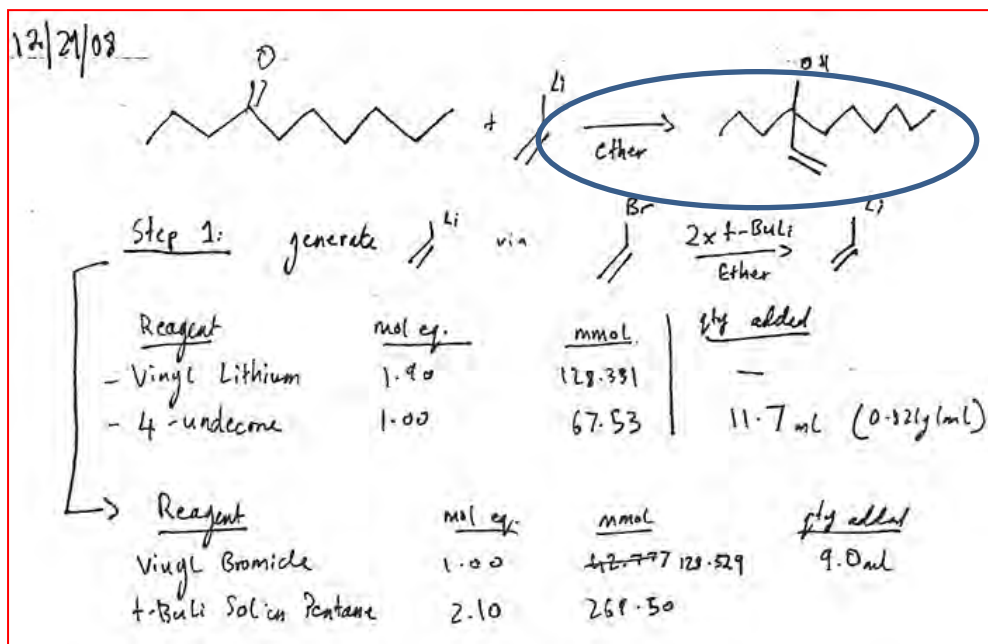 12/29/08
O
Li
OH
+
Ether
Step 1: generate Li via Br 2x t-BuLi Li
Ether
Reagent mol eq. mmol qty added
- Vinyl Lithium 1.90 128.331 —
- 4-undecone 1.00 67.53 11.7 mL (0.821g/mL)
Reagent mol eq. mmol qty added
Vinyl Bromide 1.00 128.529 9.0 mL
t-BuLi Sol in Pentane 2.10 269.50